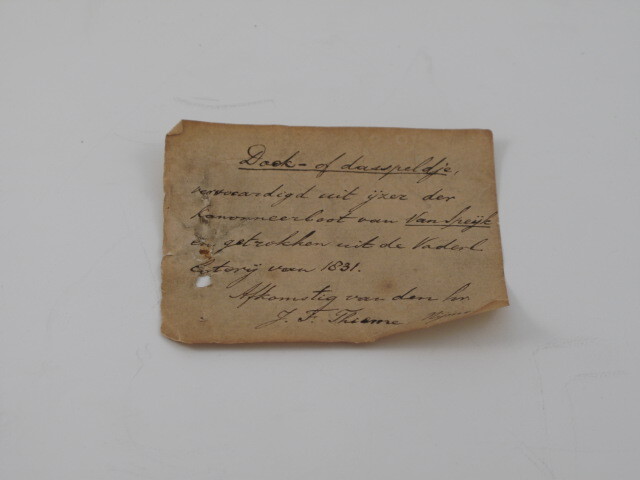 Doek- of dasspeldje,
vervaardigd uit ijzer der
kanonneerboot van Van Speijk
en getrokken uit de Vaderl
van 1831.
Afkomstig van den hr
J. F. Thieme